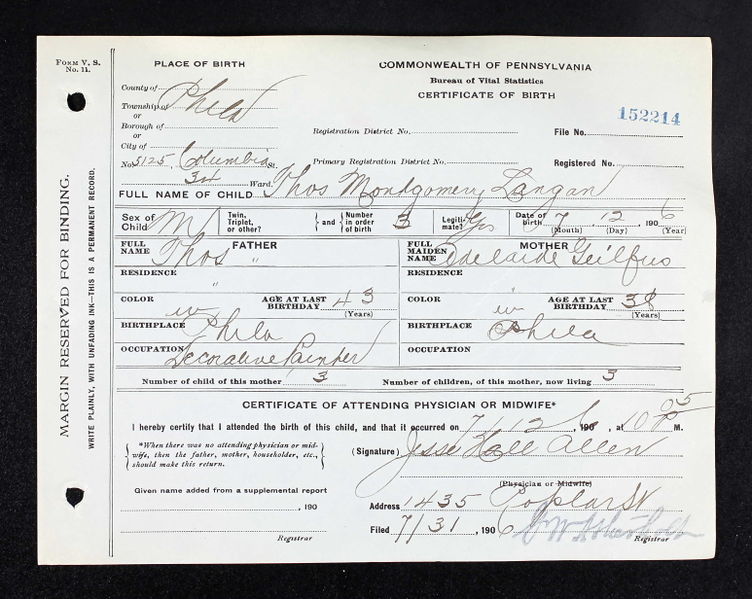 FORM V. S.
No. 11.
MARGIN RESERVED FOR BINDING.
WRITE PLAINLY, WITH UNFADING INK—THIS IS A PERMANENT RECORD.
PLACE OF BIRTH
COMMONWEALTH OF PENNSYLVANIA
Bureau of Vital Statistics
CERTIFICATE OF BIRTH
County of
Township of Phila
or
Borough of
or
City of
152214
Registration District No. File No.
No. 5125 Columbia St. Primary Registration District No. Registered No.
34 Ward.
FULL NAME OF CHILD Thos Mondgomery Langan
Sex of Child M Twin, Triplet, or other? } and { Number in order of birth 3 Legitimate? Yes Date of birth 7 12 1906
(Month) (Day) (Year)
FATHER
FULL NAME Thos "
MOTHER
FULL MAIDEN NAME Adelaide Geilfus
RESIDENCE "
RESIDENCE
COLOR w AGE AT LAST BIRTHDAY 43 (Years)
COLOR w AGE AT LAST BIRTHDAY 38 (Years)
BIRTHPLACE Phila
BIRTHPLACE Phila
OCCUPATION Decorative Painter
OCCUPATION
Number of child of this mother 3 Number of children, of this mother, now living 3
CERTIFICATE OF ATTENDING PHYSICIAN OR MIDWIFE*
I hereby certify that I attended the birth of this child, and that it occurred on 7/12, 1906, at 10 05 P M.
{ *When there was no attending physician or mid-
wife, then the father, mother, householder, etc.,
should make this return. }
(Signature) Jesse Hall Allen
(Physician or Midwife)
Given name added from a supplemental report
, 190
Registrar
Address 1435 Poplar St
Filed 7/31, 1906
Registrar